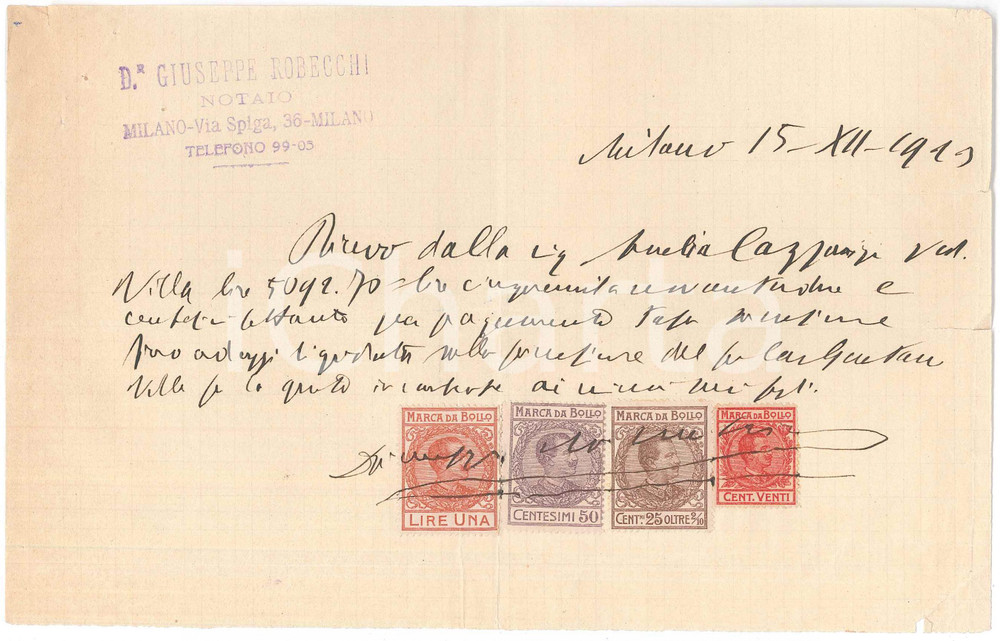 D.R GIUSEPPE ROBECCHI
NOTAIO
MILANO-Via Spiga, 36-MILANO
TELEFONO 99-05
Milano 15-XII-1923
Ricevo dalla sig Amelia Cazzaniga ved.
Villa lire 5092.70 - lire cinquemilanovantadue e
centesimi settanta per pagamento tassa successione
fino ad oggi liquidata sulla successione del fu
Villa per la quota
MARCA DA BOLLO
LIRE UNA
MARCA DA BOLLO
CENTESIMI 50
MARCA DA BOLLO
CENT.MI 25 OLTRE 2/10
MARCA DA BOLLO
CENT. VENTI